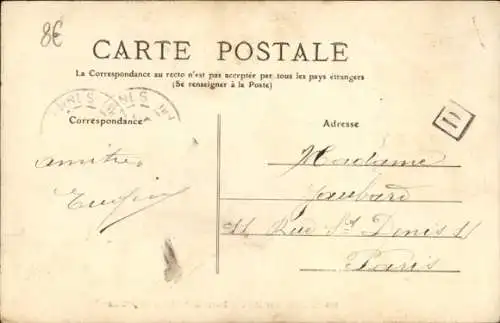 8€
CARTE POSTALE
La Correspondance au recto n'est pas acceptée par tous les pays étrangers
(Se renseigner à la Poste)
Correspondance
Adresse
D
Madame
Jaubard
11 Rue St Denis 11
Paris
amitiés